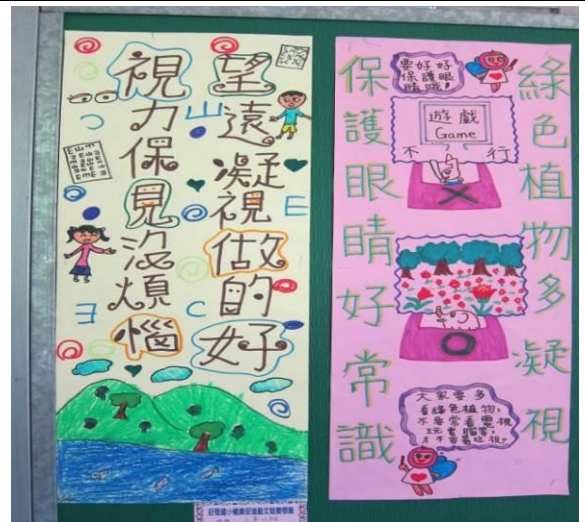 望遠凝視做的好
視力保見沒煩惱
E
山
C
綠色植物多凝視
保護眼睛好常識
要好好
保護眼
睛哦!
遊戲
Game
不行
大家要多
看綠色植物,
不要常看電視